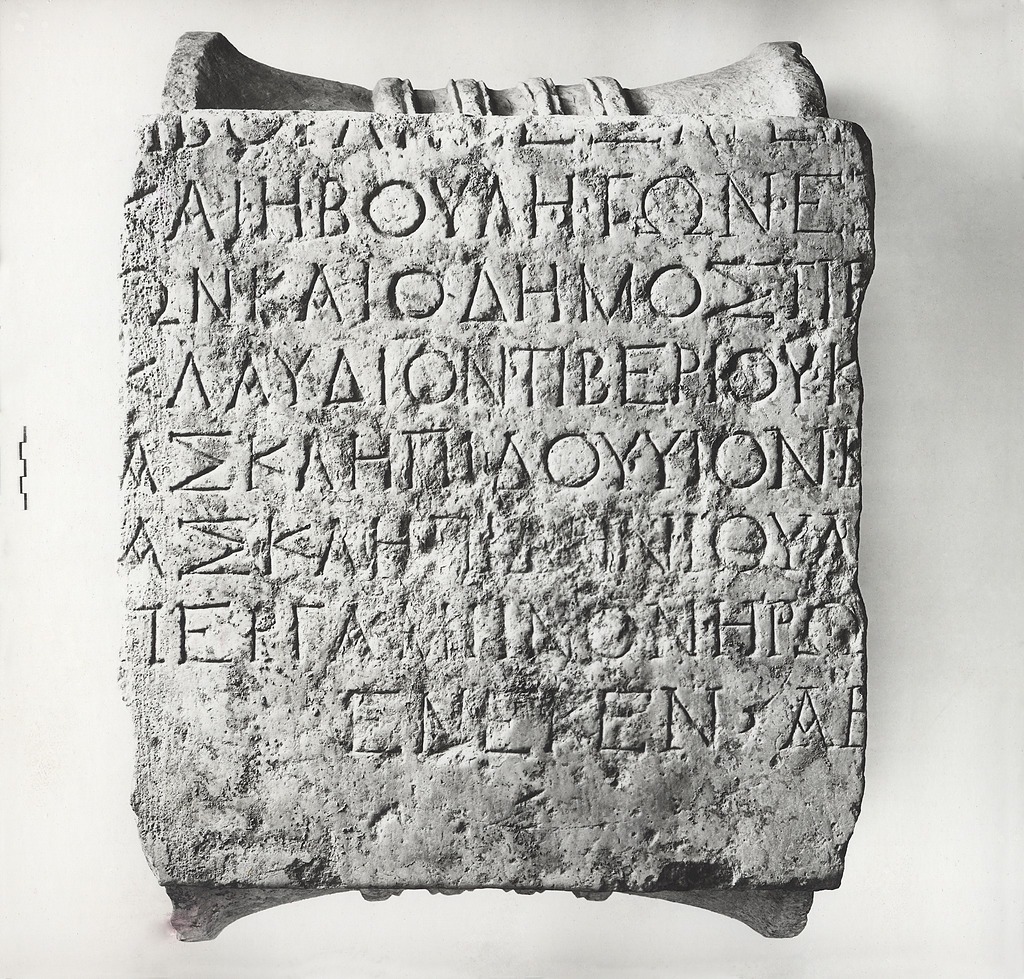 ΚΑΙ Η ΒΟΥΛΗ ΤΩΝ Ε
ΩΝ ΚΑΙ Ο ΔΗΜΟΣ ΤΙΒ
ΚΛΑΥΔΙΟΝ ΤΙΒΕΡΙΟΥ Κ
ΑΣΚΛΗΠΙΔΟΥ ΥΙΟΝ Κ
ΑΣΚΛΗΠΙ
ΠΕΡΓΑΜΗΝΟΝ ΗΡΩ
ΕΝΕΚΕΝ ΑΡ